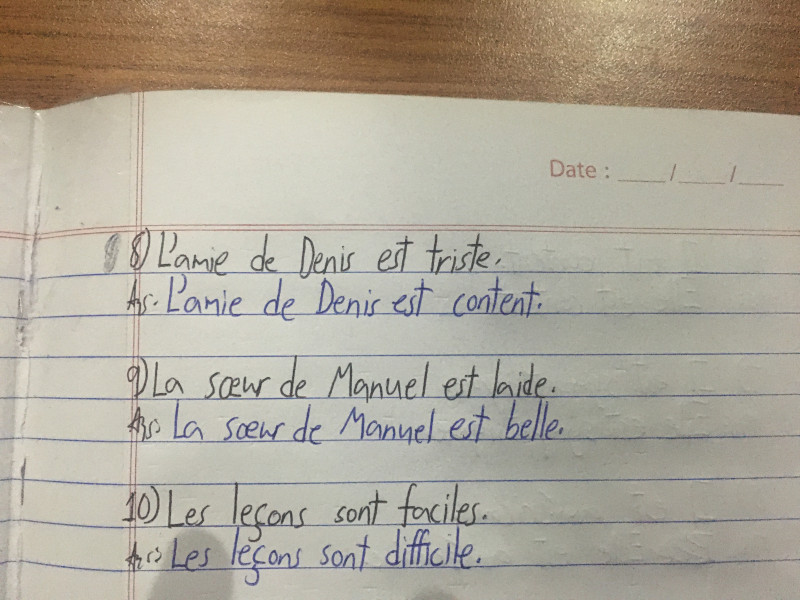 Date : ___/___/___
8) L'amie de Denis est triste.
Ans. L'amie de Denis est content.
9) La sœur de Manuel est laide.
Ans: La sœur de Manuel est belle.
10) Les leçons sont faciles.
Ans: Les leçons sont difficile.